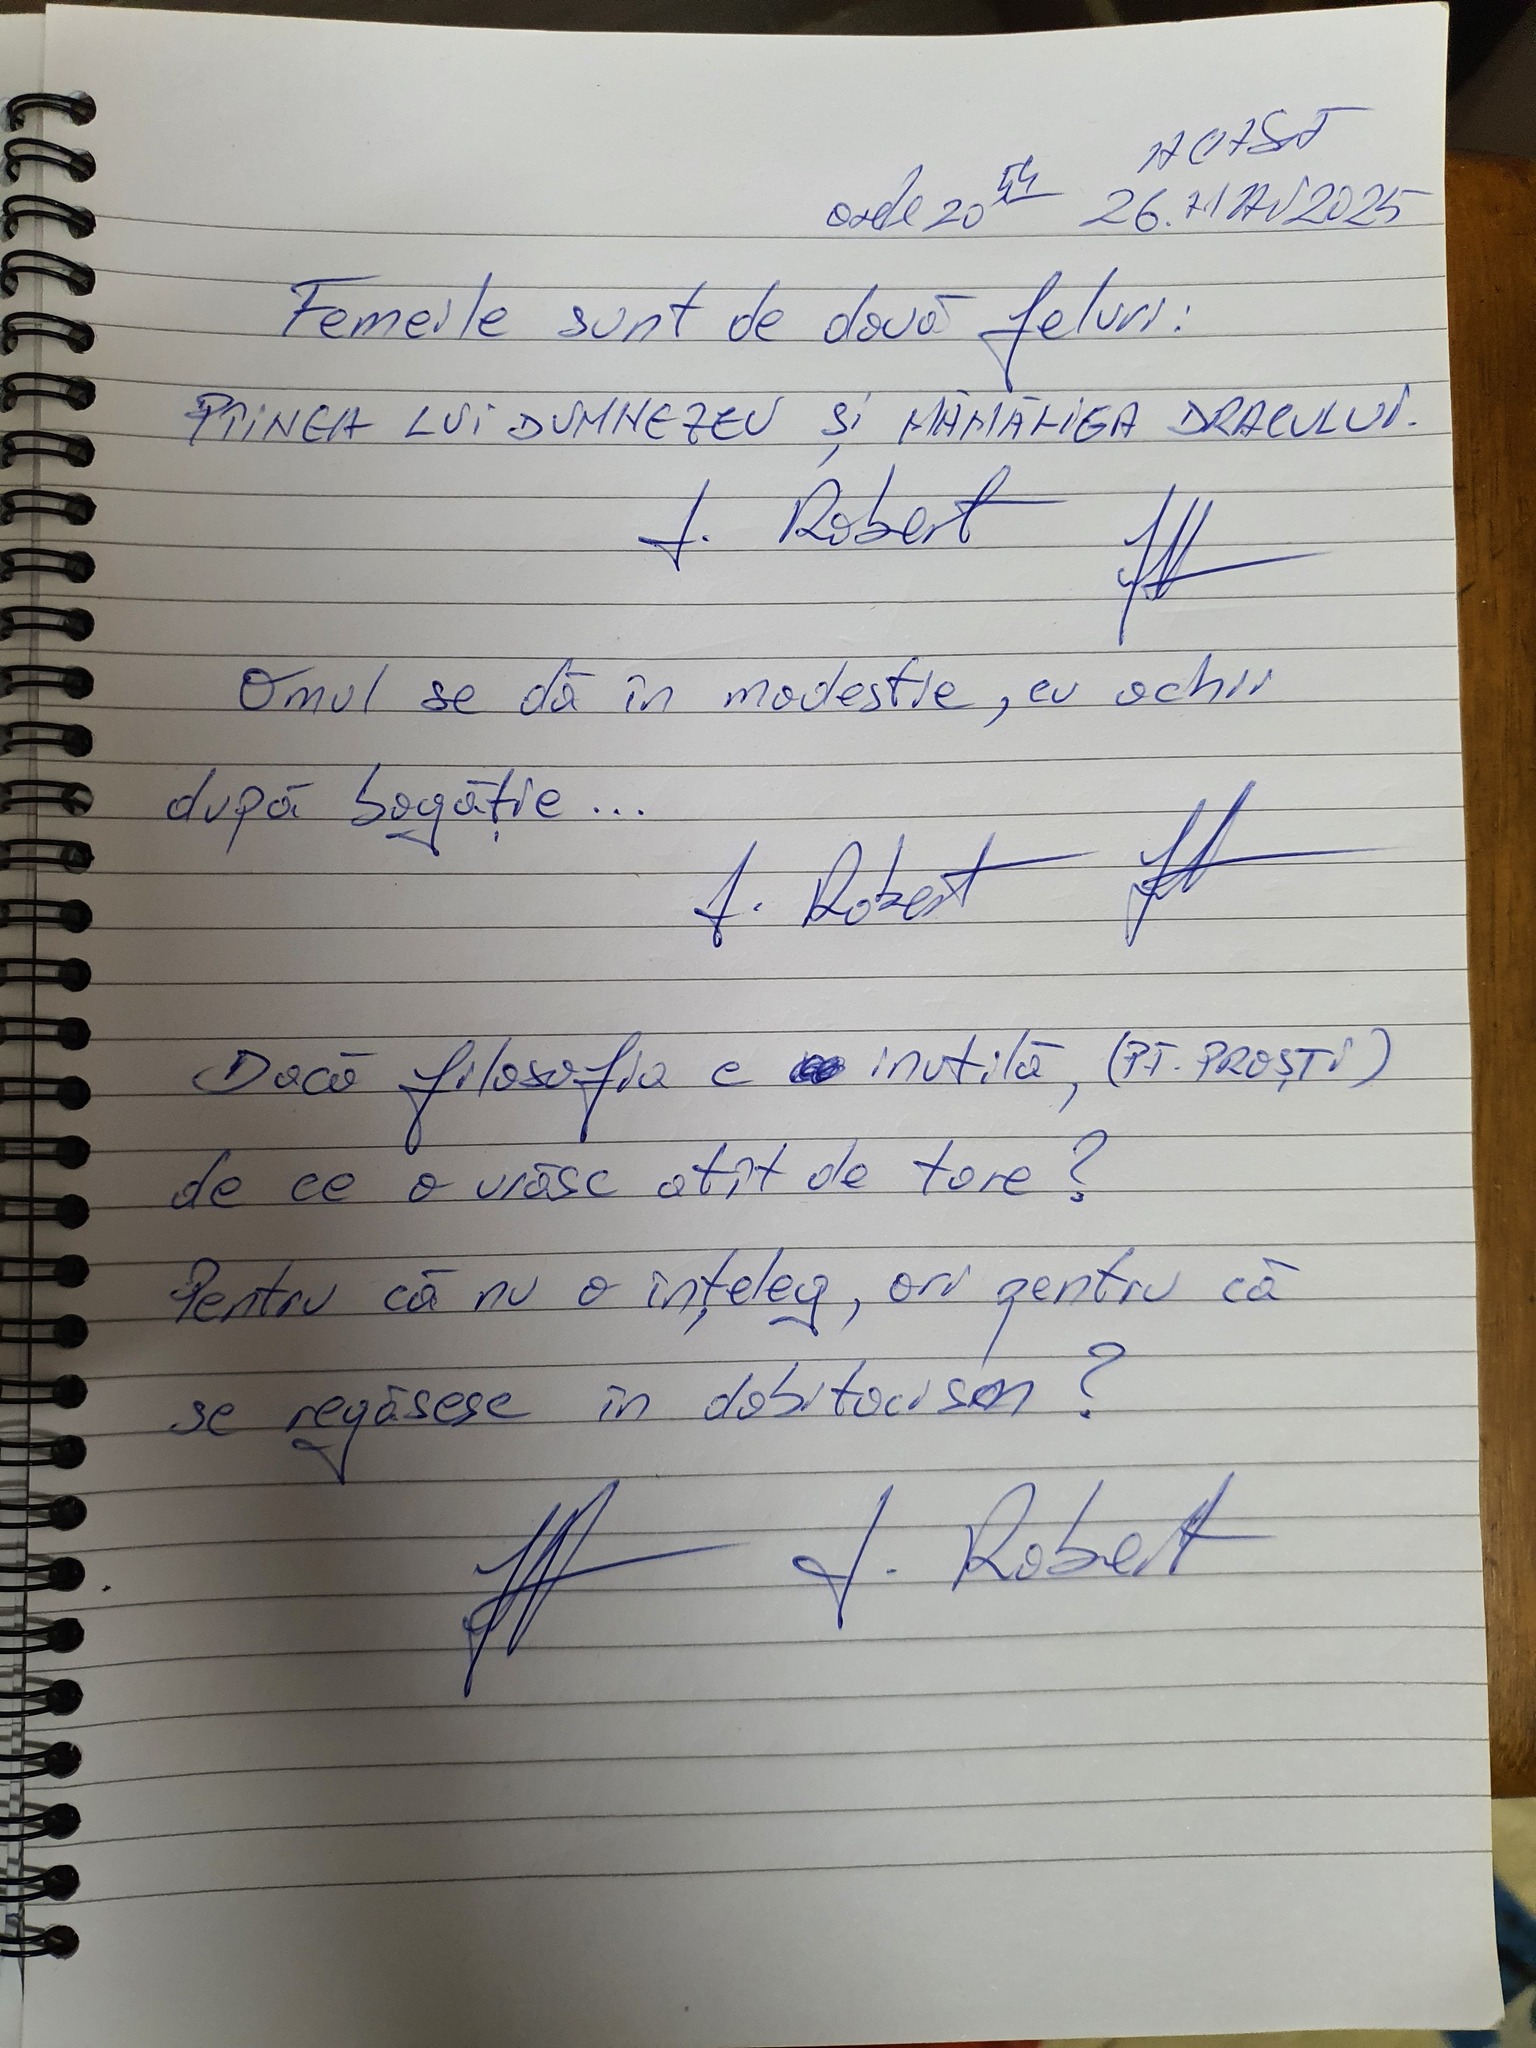 ACASĂ
orele 20 44 26.MAI 2025
Femeile sunt de două feluri:
PÎINEA LUI DUMNEZEU ȘI MĂMĂLIGA DRACULUI.
J. Robert
Omul se dă în modestie, cu ochii
după bogăție...
J. Robert
Dacă filosofia e inutilă, (PT. PROȘTI)
de ce o urăsc atît de tare?
Pentru că nu o înțeleg, ori pentru că
se regăsesc în dobitocism?
J. Robert